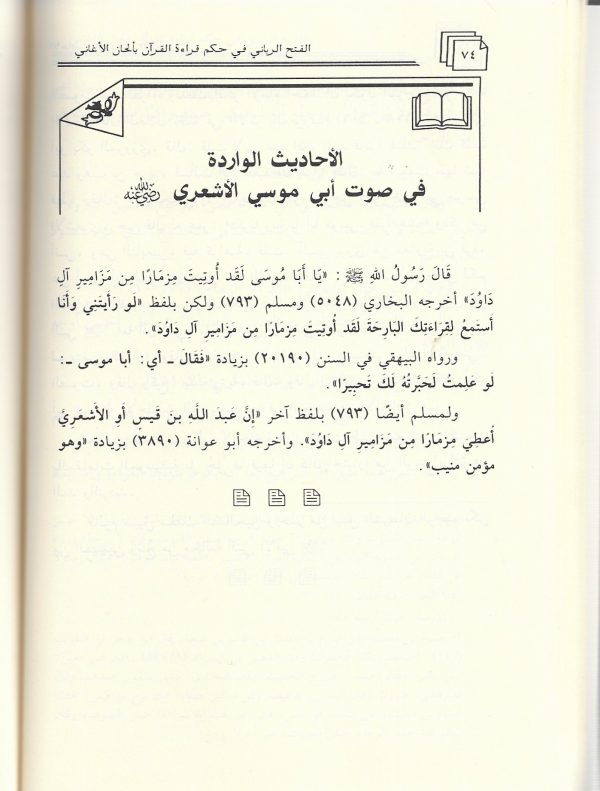 ٧٤
الفتح الرباني في حكم قراءة القرآن بألحان الأغاني
الأحاديث الواردة
في صوت أبي موسي الأشعري رضي الله عنه
قَالَ رَسُولُ اللهِ ﷺ: «يَا أَبَا مُوسَى لَقَد أُوتِيتَ مِزمَارًا مِن مَزَامِيرِ آلِ
دَاوُدَ» أخرجه البخاري (٥٠٤٨) ومسلم (٧٩٣) ولكن بلفظ «لَو رَأَيتَنِي وَأَنا
أَستَمعُ لِقِرَاءَتِكَ البَارِحَةَ لَقَد أُوتِيتَ مِزمَارًا مِن مَزَامِيرِ آلِ دَاوُدَ».
ورواه البيهقي في السنن (٢٠١٩٠) بزيادة «فَقَالَ ـ أي: أبا موسى ـ:
لَو عَلِمتُ لَحَبَّرتُهُ لَكَ تَحبِيرًا».
ولمسلم أيضًا (٧٩٣) بلفظ آخر «إنَّ عَبدَ اللَّهِ بنَ قَيسٍ أَوِ الأَشعَرِيَّ
أُعطِيَ مِزمَارًا مِن مَزَامِيرِ آلِ دَاوُدَ». وأخرجه أبو عوانة (٣٨٩٠) بزيادة «وهو
مؤمن منيب».